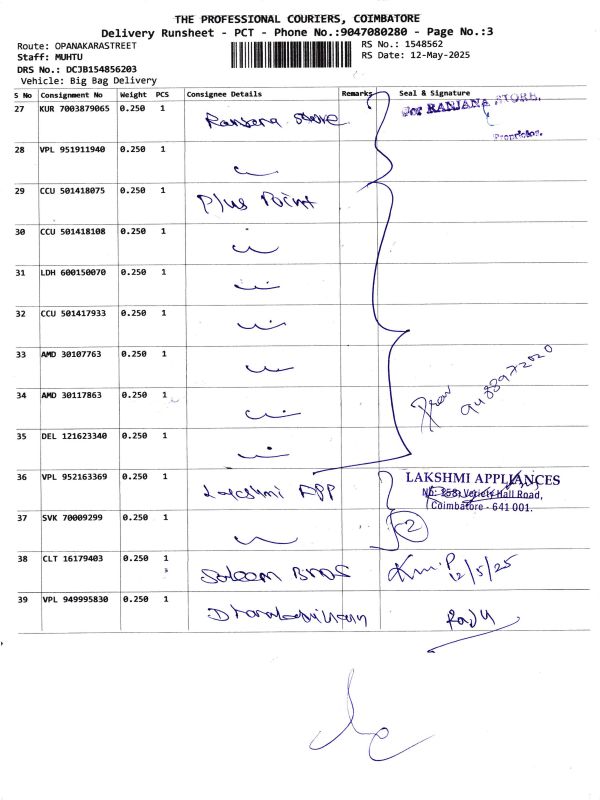 THE PROFESSIONAL COURIERS, COIMBATORE
Delivery Runsheet - PCT - Phone No.:9047080280 - Page No.:3
Route: OPANAKARASTREET
Staff: MUHTU
DRS No.: DCJB154856203
Vehicle: Big Bag Delivery
RS No.: 1548562
RS Date: 12-May-2025
S No Consignment No Weight PCS Consignee Details Remarks Seal & Signature
27 KUR 7003879065 0.250 1 Ranjana Store For RANJANA STORE.
Proprietor.
28 VPL 951911940 0.250 1
29 CCU 501418075 0.250 1 Plus Point
30 CCU 501418108 0.250 1
31 LDH 600150070 0.250 1
32 CCU 501417933 0.250 1
33 AMD 30107763 0.250 1
34 AMD 30117863 0.250 1
9488972020
35 DEL 121623340 0.250 1
36 VPL 952163369 0.250 1 Lakshmi APP LAKSHMI APPLIANCES
No: 358, Veriety Hall Road,
Coimbatore - 641 001.
37 SVK 70009299 0.250 1 2
38 CLT 16179403 0.250 1 Saleem Bros 12/5/25
39 VPL 949995830 0.250 1 Raju